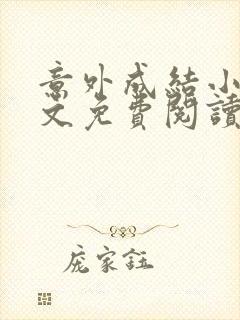 意外成結小
文免費閱讀
庞家鈺